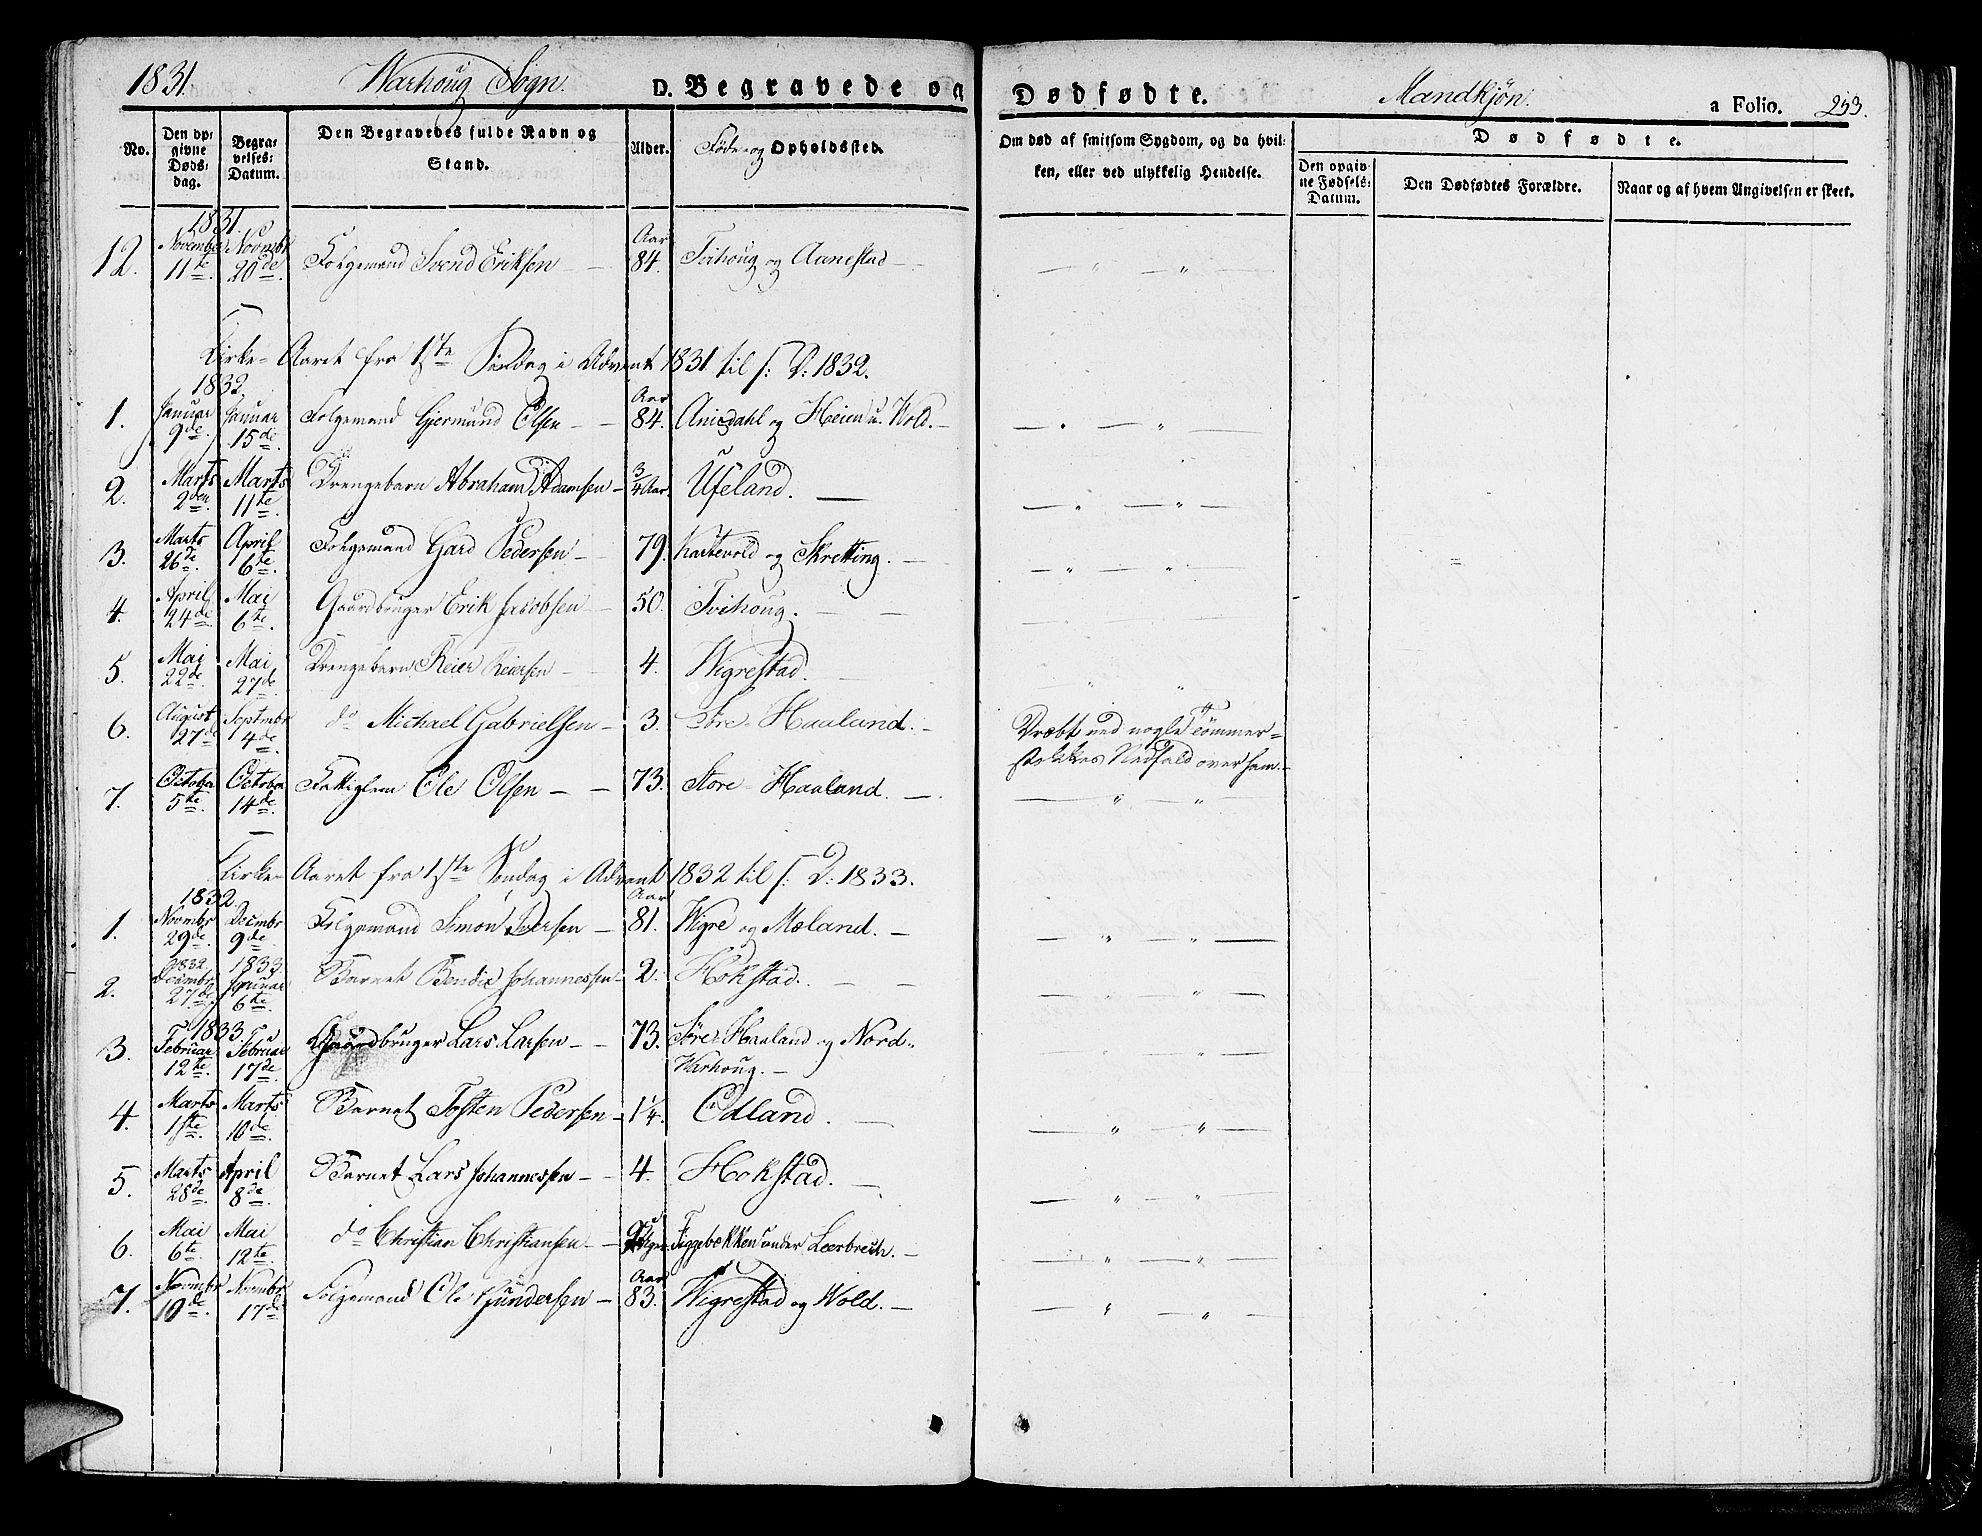 1831. Warhoug Sogn. D. Begravede og Dødfødte. Mandkjøn. a Folio. 253.
No. Den opgivne Dødsdag. Begravelses-Datum. Den Begravedes fulde Navn og Stand. Alder. Føde- og Opholdssted. Om død af smitsom Sygdom, og da hvilken, eller ved ulykkelig Hendelse. Dødfødte. Den opgivne Fødsels-Datum. Den Dødfødtes Forældre. Naar og af hvem Angivelsen er skeet.
1831.
12. November 11te Novmbr 20de Folgemand Svend Eriksen — 84. Aar Tvihoug og Aanestad —
Kirke-Aaret fra 1ste Søndag i Advent 1831 til s: D: 1832.
1832
1. Januar 9de Januar 15de. Folgemand Gjermund Olsen — 84. Aar Anisdahl og Heien u. Wold. —
2. Marts 2den Marts 11te Drengebarn Abraham Adamsen — 3/4 Aar Ueland. —
3. Marts 26de April 6te Folgemand Gard Pedersen — 79. Kartevold og Skretting. —
4. April 24de Mai 6te Gaardbruger Erik Jacobsen — 50. Tvihoug. —
5. Mai 22de Mai 27de Drengebarn Reier Reiersen — 4. Wigrestad. —
6. August 27de Septmbr 4de do Michael Gabrielsen — 3. Søre-Haaland. — Dræbt ved nogle Tømmer-
stokkes Nedfald over ham. —
7. October 5te October 14de Fattiglem Ole Olsen — 73. Store-Haaland. —
Kirke-Aaret fra 1ste Søndag i Advent 1832 til s: D: 1833.
1832.
1. Novmbr 29de Decmbr 9de Folgemand Simon Iversen — 81. Aar Wigre og Mæland. —
2. 1832 Decmbr 27de 1833 Januar 6te Barnet Bendix Johannessen — 2. Hokstad. —
1833.
3. Februar 12te Februar 17de Gaardbruger Lars Larsen — 73. Søre-Haaland og Nord-
Warhoug. —
4. Marts 1ste Marts 10de Barnet Tosten Pedersen — 1 1/4. Odland. —
5. Marts 28de April 8de Barnet Lars Johannessen — 4. Hokstad. —
6. Mai 6te Mai 12te do Christian Christiansen — Tiggebækken under Leerbrech. —
7. Novmbr 10de Novmbr 17de Folgemand Ole Gundersen — 83. Aar Wigrestad og Wold. —